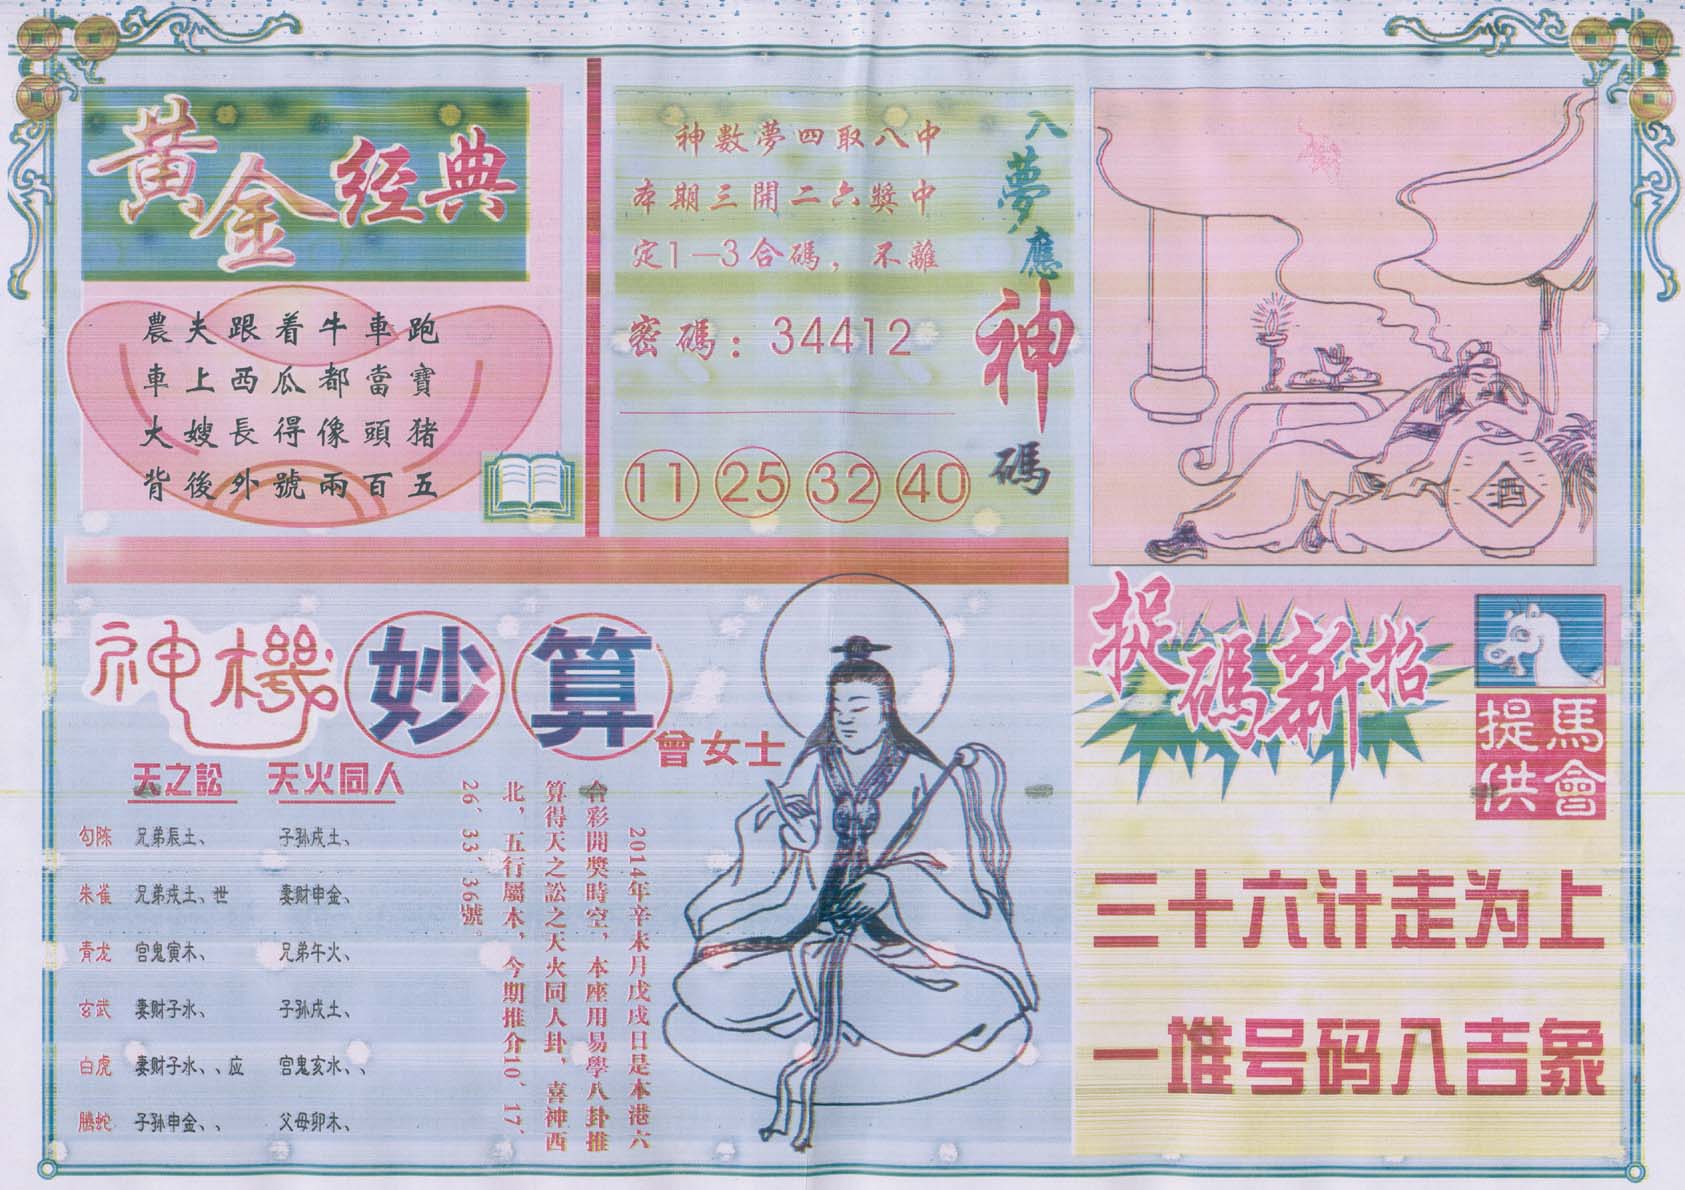 黄金经典
農夫跟着牛車跑
車上西瓜都當寶
大嫂長得像頭猪
背後外號兩百五
入夢應神碼
神數夢四取八中
本期三開二六獎中
定1—3合碼，不離
密碼：34412
11 25 32 40
酒
神機妙算
曾女士
天之訟 天火同人
勾陈 兄弟辰土、 子孙戌土、
朱雀 兄弟戌土、世 妻财申金、
青龙 宫鬼寅木、 兄弟午火、
玄武 妻财子水、 子孙戌土、
白虎 妻财子水、、应 宫鬼亥水、、
騰蛇 子孙申金、、 父母卯木、
2014年辛未月戊戌日是本港六
合彩開獎時空，本座用易學八卦推
算得天之訟之天火同人卦，喜神西
北，五行屬木，今期推介10、17、
26、33、36號。
捉碼新招
馬會提供
三十六计走为上
一堆号码入吉象